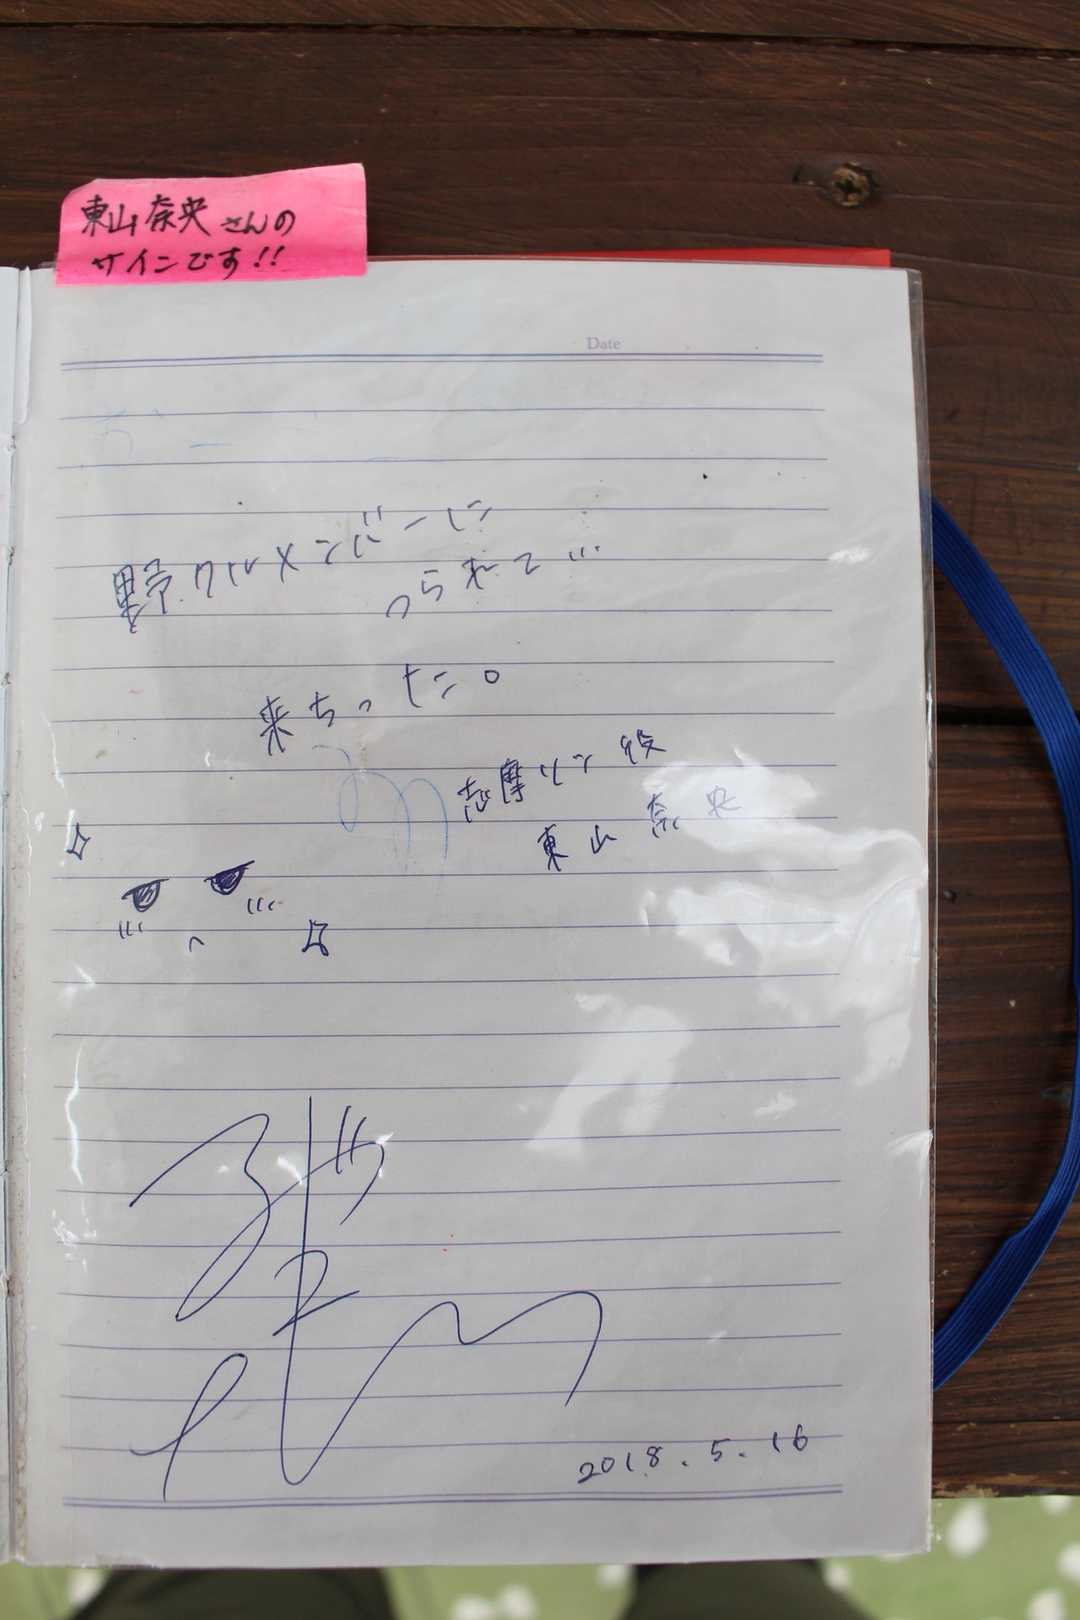 東山奈央さんの
サインです!!
Date
野クルメンバーに
つられて…
来ちった。
志摩リン役
東山奈央
2018.5.16